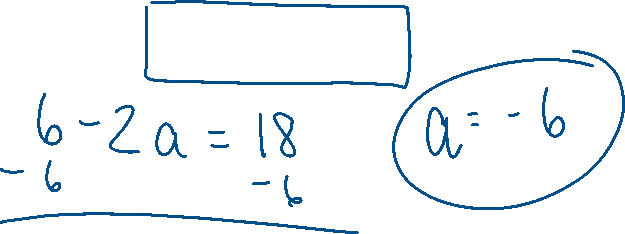 6 - 2a = 18
-6 -6
a = -6